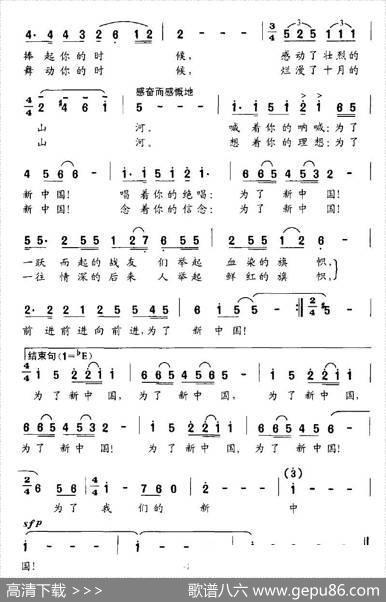 4· 4 4 3 2 6 1 2 | 2 - - - | 3/4 5 2 5 1 1 1
捧起你的时 候, 感动了壮烈的
舞动你的时 候, 烂漫了十月的
感奋而感慨地
4/4 2 #4 6 1 | 5 - - - | 1· 1 5 1 2 1 6 5
山 河。 喊着你的呐喊:为了
山 河。 想着你的理想:为了
4 5 6 6 - | 1· 1 5 1 2 1· | 6 6 5 4 5 3 2
新中国! 唱着你的绝唱: 为了新中国!
新中国! 念着你的信念: 为了新中国!
5 5· 2 5 5 1 2 7 | 6 5 5 - - | 2 2 5 1 2 6 -
一跃而起的战友 们举起 血染的旗 帜,
一往情深的后来 人举起 鲜红的旗 帜,
2· 2 2 1 2 5 5 | 1 6 1 5 5 | 5 - - - :‖ 2/4 5 -
前进前进向前进,为了 新中国!
结束句(1=bE)
4/4 1 5 2 2 1 1 | 6 6 5 4 5 6 5 | 1 5 2 2 1 1
为了新中国, 为了新中国, 为了新中国,
6 6 5 4 5 3 2 | 1 5 2 2 1 1 | 6 6 5 4 5 6 5 | 5 - - -
为了新中国! 为了新中国, 为了新中国!
2/4 6 5 6 | 4/4 1 - 7 6 0 | 2 - - - | 1 - - -
(3)
为了 我们的 新 中
sfp
1 - - - | 1 - - - | 1 - - - | 1 0 0 0 ‖
国!
高清下载 >>> 歌谱八六 www.gepu86.com